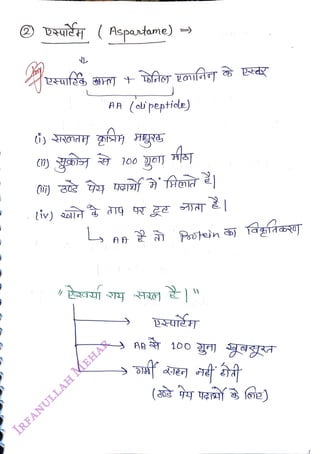 ② एस्पार्टेम ( Aspartame) →
एस्पार्टिक अम्ल + फेनिल एलानिन के एस्टर
AA (dipeptide)
(i) सरलतम कृत्रिम मधुरक
(ii) सुक्रोज से 100 गुना मीठा
(iii) ठण्डे पेय पदार्थो में मिलाते है।
(iv) खाने के ताप पर टूट जाता है।
AA है तो Protein का विकृतिकरण
"ऐश्वर्या राय सरल है।"
एस्पार्टेम
AA से 100 गुना खूबसूरत
गर्मी सहन नहीं होती
(ठण्डे पेय पदार्थो के लिए)
IRFANULLAH MEHAR